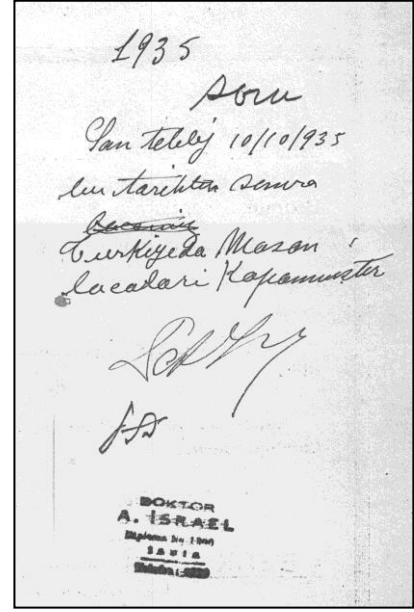 1935
Sonu
Son tebliğ 10/10/935
bu tarihten sonra
Turkiyeda Mason
locaları Kapanmıştır
DOKTOR
A. ISRAEL
Diploma No